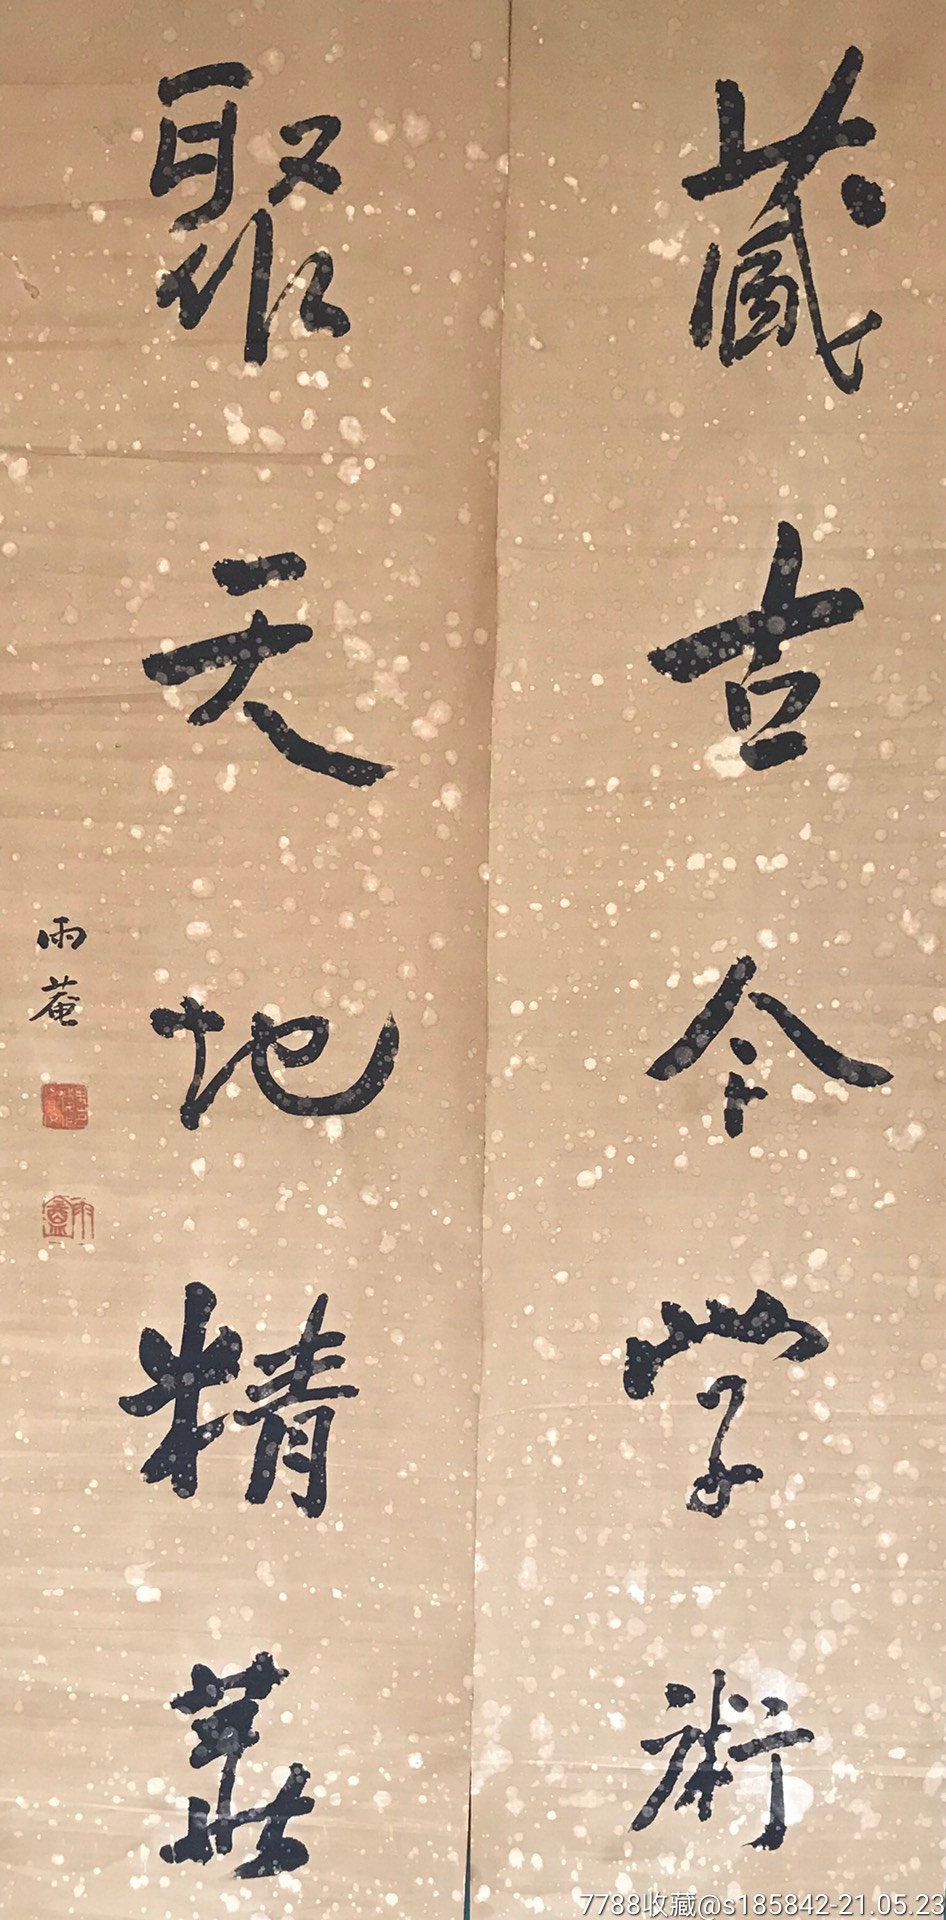 藏古今学術
聚天地精華
雨菴
雨盦
7788收藏@s185842-21.05.23